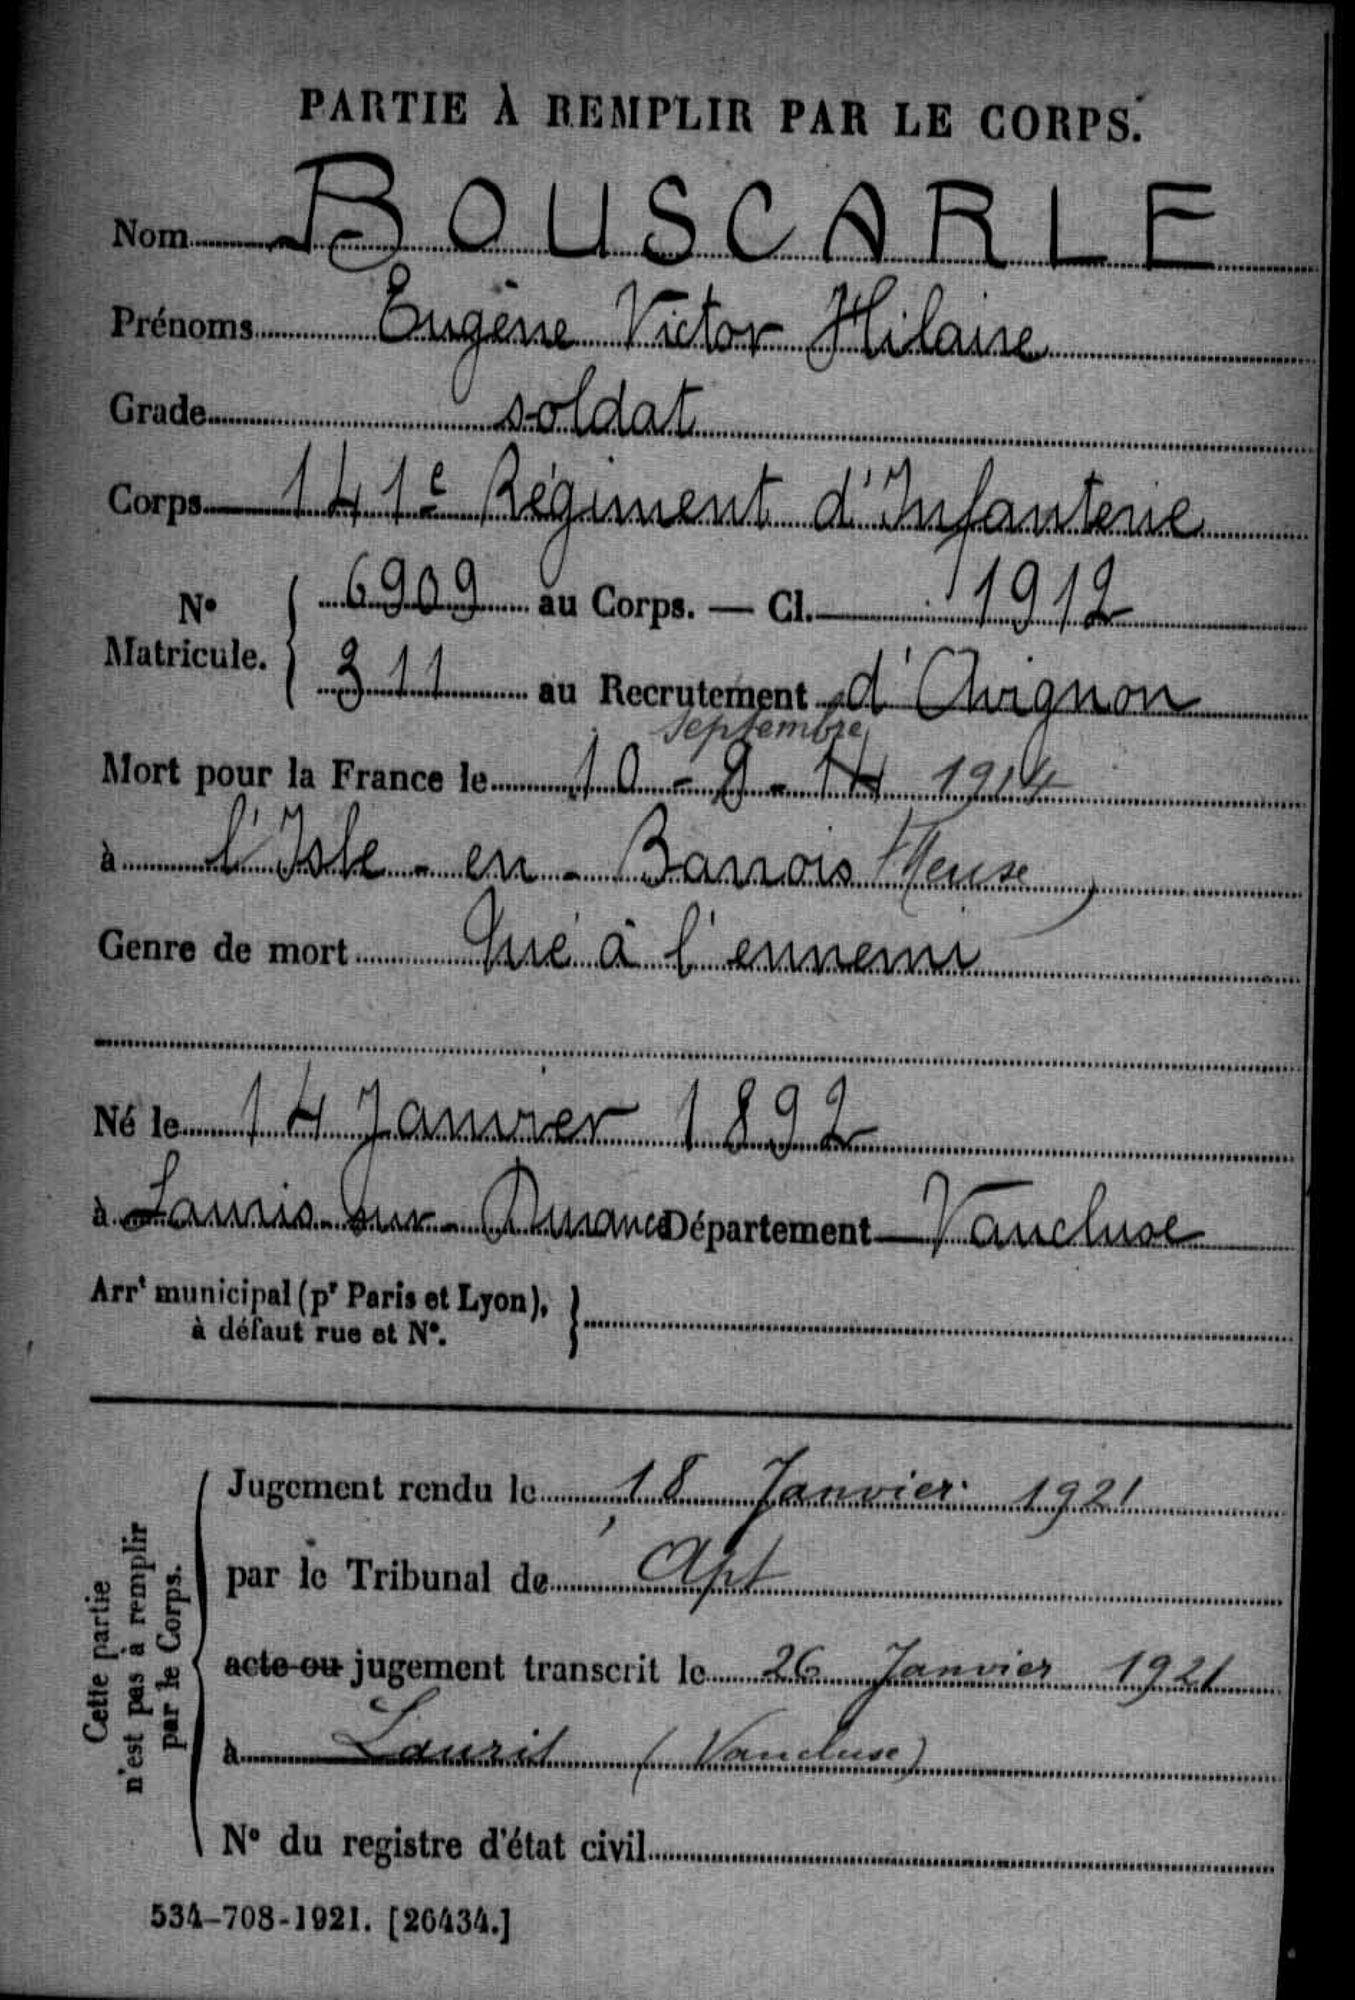 PARTIE À REMPLIR PAR LE CORPS.
Nom BOUSCARLE
Prénoms Eugène Victor Hilaire
Grade soldat
Corps 141e Régiment d'Infanterie
N° Matricule. { 6909 au Corps. — Cl. 1912
311 au Recrutement d'Avignon
septembre
Mort pour la France le 10-9-14 1914
à l'Isle-en-Barrois Meuse
Genre de mort Tué à l'ennemi
Né le 14 Janvier 1892
à Lauris-sur-Durance Département Vaucluse
Arrt municipal (pr Paris et Lyon),
à défaut rue et N°.
Cette partie
n'est pas à remplir
par le Corps.
Jugement rendu le 18 Janvier 1921
par le Tribunal de Apt
acte ou jugement transcrit le 26 Janvier 1921
à Lauris (Vaucluse)
N° du registre d'état civil
534-708-1921. [26434.]